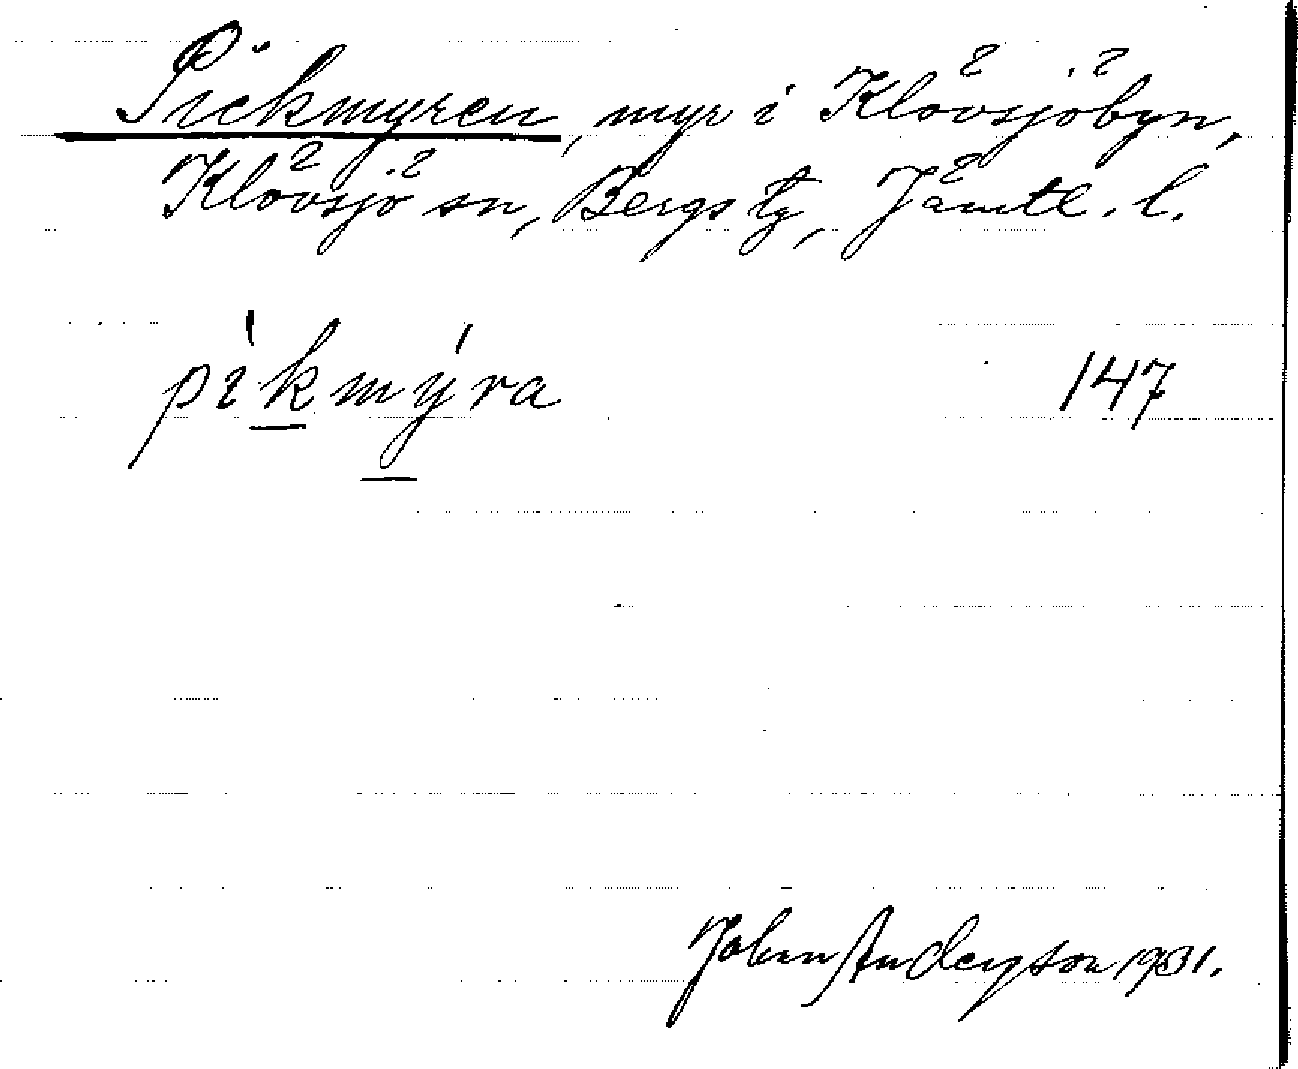 Pickmyren, myr i Klövsjöbyn,
Klövsjö sn, Bergs tg, Jämtl. l.
pìkmýra 147
Johan Andersson 1931.